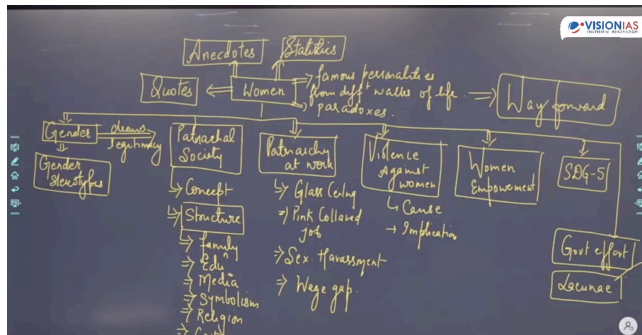 VISIONIAS
Anecdotes
Statistics
Quotes
Women
famous personalities
from diffᵗ walks of life
paradoxes.
Way forward
Gender
draws
legitimacy
Gender
Stereotypes
Patriarchal
Society
Concept
Structure
family
Edu
Media
Symbolism
Religion
Patriarchy
at work
Glass Ceiling
Pink Collared
Job
Sex. Harassment
Wage gap.
Violence
Against
women
Cause
Implication
Women
Empowement
SDG-5
Govt effort
Lacunae